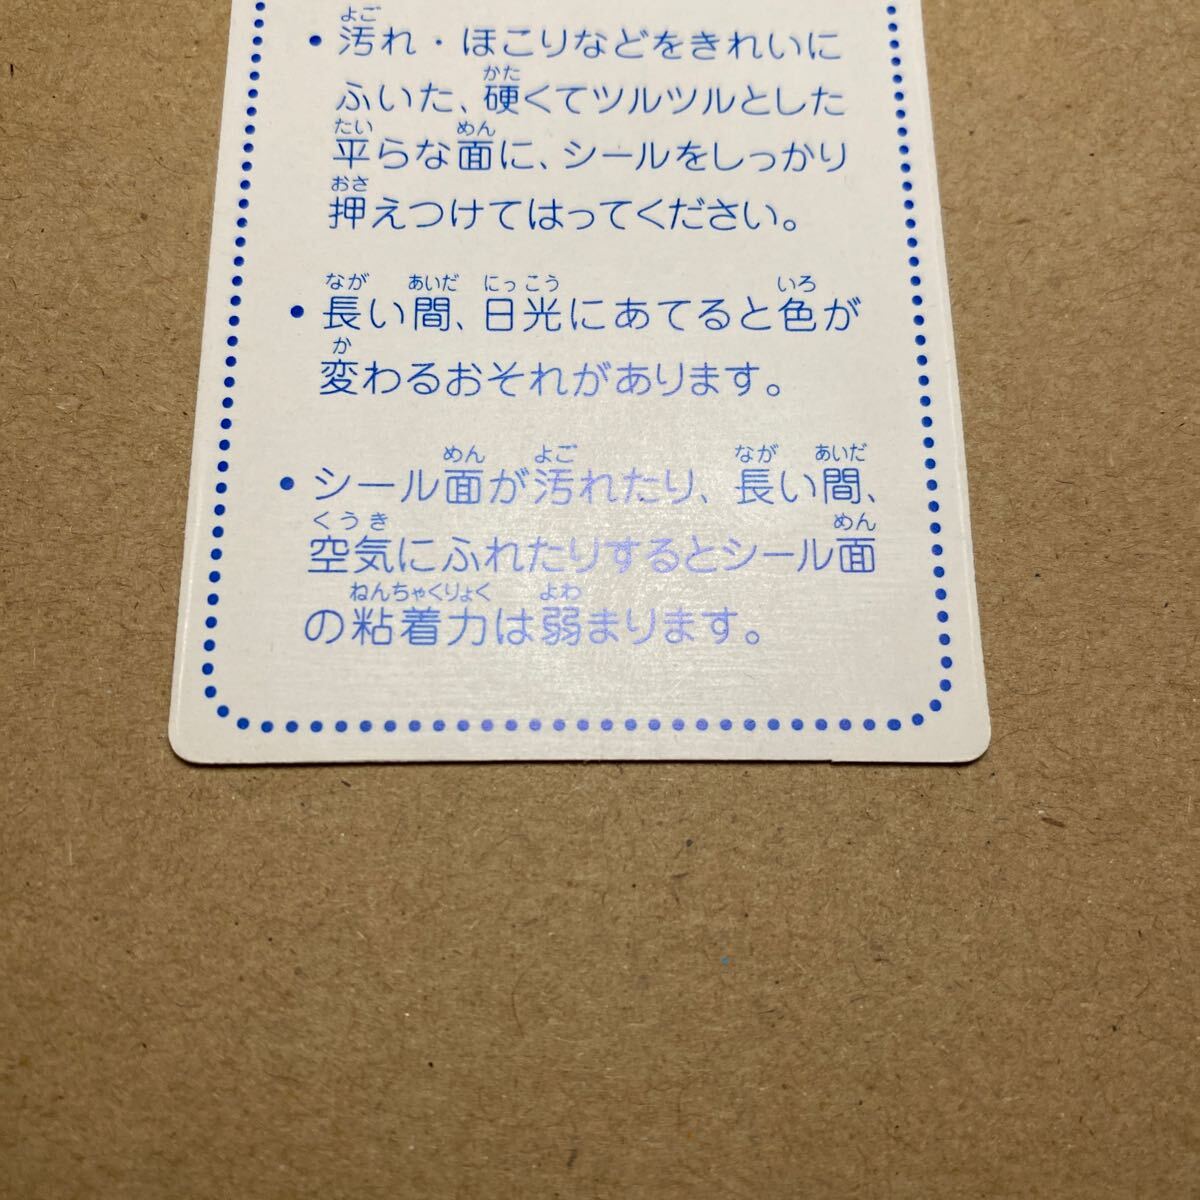 ・汚れ・ほこりなどをきれいに
ふいた、硬くてツルツルとした
平らな面に、シールをしっかり
押えつけてはってください。
・長い間、日光にあてると色が
変わるおそれがあります。
・シール面が汚れたり、長い間、
空気にふれたりするとシール面
の粘着力は弱まります。